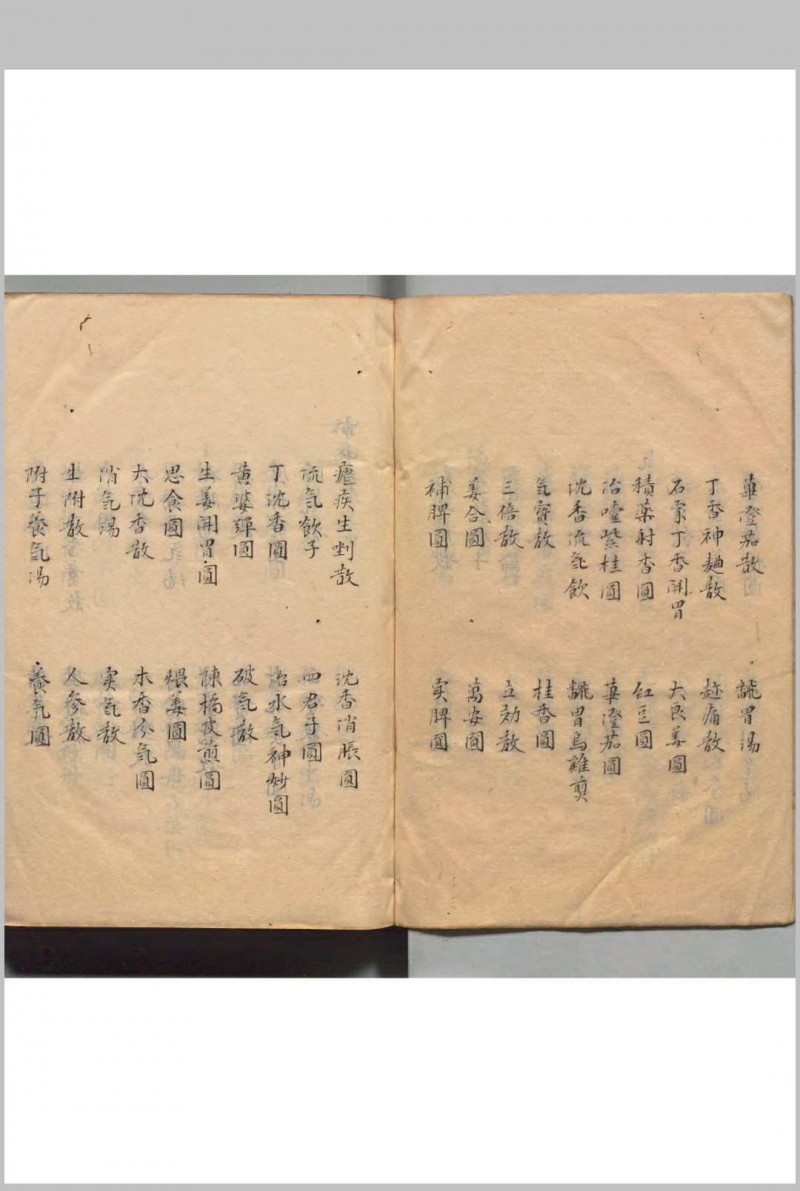 蓽澄茄散
醒胃湯
丁香神麯散
趂痛散
石菜丁香開胃
大良姜圓
積藥射香圓
紅豆圓
治噎紫桂圓
蓽澄茄圓
沈香流氣飲
醒胃烏雞煎
氣寳散
桂香圓
三倍散
立効散
姜合圓
萬安圓
補脾圓
实脾圓
瘧疾生㓨散
沈香消脹圓
流氣飲子
四君子圓
丁沈香圓
治水氣神妙圓
黄婆彈圓
破氣散
生姜開胃圓
陳橘皮煎圓
思食圓
煨姜圓
大沈香散
木香分氣圓
消氣湯
实氣散
生附散
人参散
附子養氣湯
養氣圓